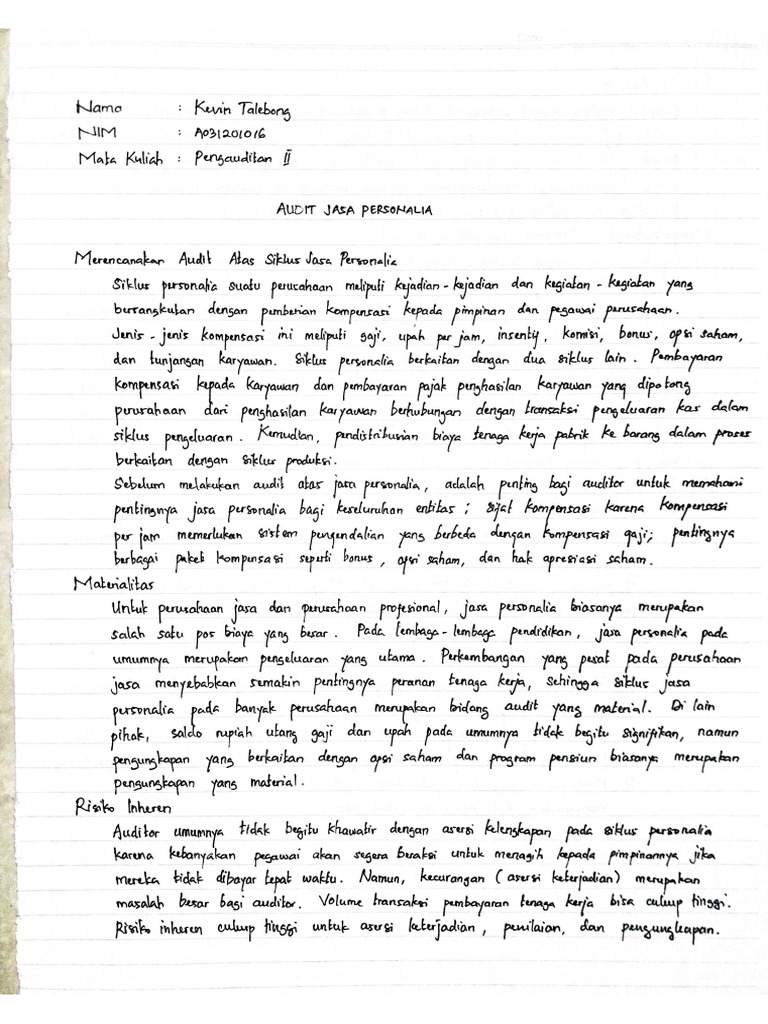 Nama : Kevin Talebong
NIM : A031201016
Mata Kuliah : Pengauditan II
AUDIT JASA PERSONALIA
Merencanakan Audit Atas Siklus Jasa Personalia
Siklus personalia suatu perusahaan meliputi kejadian-kejadian dan kegiatan-kegiatan yang
bersangkutan dengan pemberian kompensasi kepada pimpinan dan pegawai perusahaan.
Jenis-jenis kompensasi ini meliputi gaji, upah per jam, insentif, komisi, bonus, opsi saham,
dan tunjangan karyawan. Siklus personalia berkaitan dengan dua siklus lain. Pembayaran
kompensasi kepada karyawan dan pembayaran pajak penghasilan karyawan yang dipotong
perusahaan dari penghasilan karyawan berhubungan dengan transaksi pengeluaran kas dalam
siklus pengeluaran. Kemudian, pendistribusian biaya tenaga kerja pabrik ke barang dalam proses
berkaitan dengan siklus produksi.
Sebelum melakukan audit atas jasa personalia, adalah penting bagi auditor untuk memahami
pentingnya jasa personalia bagi keseluruhan entitas; sifat kompensasi karena kompensasi
per jam memerlukan sistem pengendalian yang berbeda dengan kompensasi gaji; pentingnya
berbagai paket kompensasi seperti bonus, opsi saham, dan hak apresiasi saham.
Materialitas
Untuk perusahaan jasa dan perusahaan profesional, jasa personalia biasanya merupakan
salah satu pos biaya yang besar. Pada lembaga-lembaga pendidikan, jasa personalia pada
umumnya merupakan pengeluaran yang utama. Perkembangan yang pesat pada perusahaan
jasa menyebabkan semakin pentingnya peranan tenaga kerja, sehingga siklus jasa
personalia pada banyak perusahaan merupakan bidang audit yang material. Di lain
pihak, saldo rupiah utang gaji dan upah pada umumnya tidak begitu signifikan, namun
pengungkapan yang berkaitan dengan opsi saham dan program pensiun biasanya merupakan
pengungkapan yang material.
Risiko Inheren
Auditor umumnya tidak begitu khawatir dengan asersi kelengkapan pada siklus personalia
karena kebanyakan pegawai akan segera beraksi untuk menagih kepada pimpinannya jika
mereka tidak dibayar tepat waktu. Namun, kecurangan (asersi keterjadian) merupakan
masalah besar bagi auditor. Volume transaksi pembayaran tenaga kerja bisa cukup tinggi.
Risiko inheren cukup tinggi untuk asersi keterjadian, penilaian, dan pengungkapan.